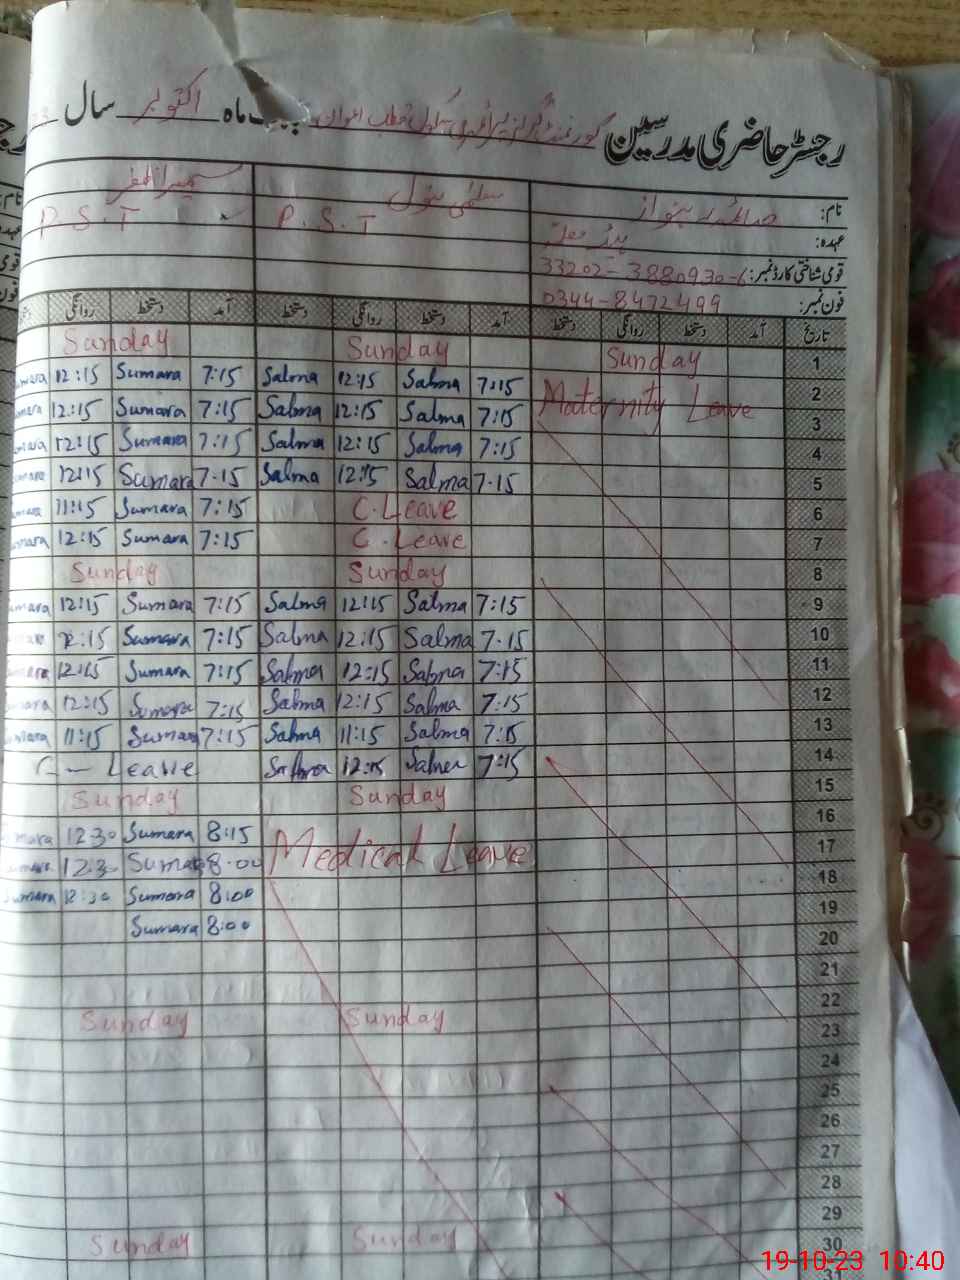 رجسٹر حاضری مدرسین گورنمنٹ گرلز پرائمری سکول قطب اعوان ماہ اکتوبر سال
نام: صائمہ ربنواز سلمیٰ بتول سمیرا ظفر
عہدہ: ہیڈ معلمہ P.S.T P.S.T
قومی شناختی کارڈ نمبر: 33202-3880930-6
فون نمبر: 0344-8472499
تاریخ آمد دستخط روانگی دستخط آمد دستخط روانگی دستخط آمد دستخط روانگی دستخط
1 Sunday Sunday Sunday
2 Maternity Leave 7:15 Salma 12:15 Salma 7:15 Sumara 12:15
3 7:15 Salma 12:15 Salma 7:15 Sumara 12:15
4 7:15 Salma 12:15 Salma 7:15 Sumara 12:15
5 7.15 Salma 12:15 Salma 7.15 Sumara 12:15
6 C.Leave 7:15 Sumara 11:15
7 C.Leave 7:15 Sumara 12:15
8 Sunday Sunday
9 7:15 Salma 12:15 Salma 7:15 Sumara 12:15
10 7.15 Salma 12:15 Salma 7:15 Sumara 12:15
11 7:15 Salma 12:15 Salma 7:15 Sumara 12:15
12 7:15 Salma 12:15 Salma 7:15 Sumara 12:15
13 7:15 Salma 11:15 Salma 7:15 Sumara 11:15
14 7:15 Salma 12:15 Salma C-Leave
15 Sunday Sunday
16 Medical Leave 8:15 Sumara 12:30
17 8:00 Sumara 12:30
18 8:00 Sumara 12:30
19 8:00 Sumara
20
21
22 Sunday Sunday
23
24
25
26
27
28
29 Sunday Sunday
30
31
19-10-23 10:40